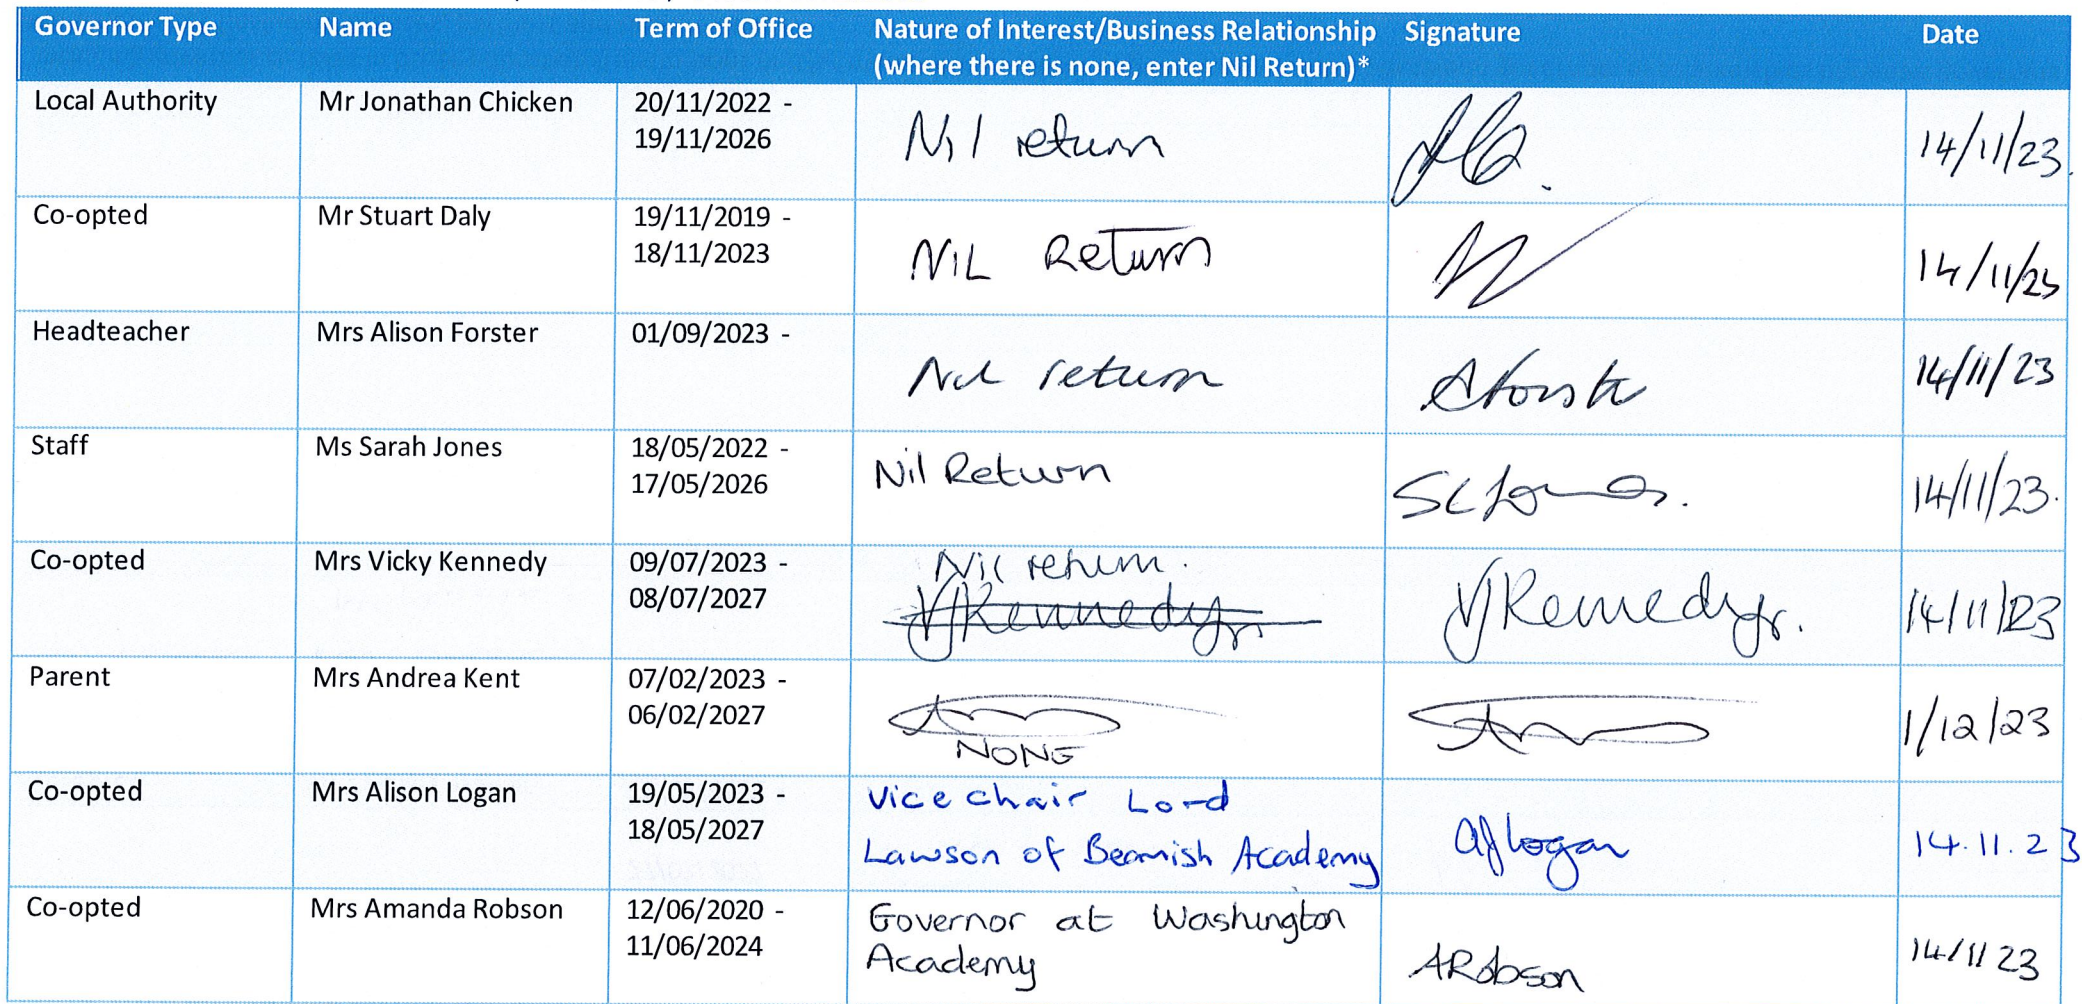 Governor Type Name Term of Office Nature of Interest/Business Relationship Signature Date
(where there is none, enter Nil Return)*
Local Authority Mr Jonathan Chicken 20/11/2022 -
19/11/2026 Nil return 14/11/23.
Co-opted Mr Stuart Daly 19/11/2019 -
18/11/2023 NIL Return 14/11/23
Headteacher Mrs Alison Forster 01/09/2023 -
Nil return AForster 14/11/23
Staff Ms Sarah Jones 18/05/2022 -
17/05/2026 Nil Return SCJones. 14/11/23.
Co-opted Mrs Vicky Kennedy 09/07/2023 - Nil return.
08/07/2027 VJKennedy VJKennedy. 14/11/23
Parent Mrs Andrea Kent 07/02/2023 -
06/02/2027 1/12/23
NONE
Co-opted Mrs Alison Logan 19/05/2023 - Vice chair Lord
18/05/2027 Lawson of Beamish Academy AJLogan 14.11.23
Co-opted Mrs Amanda Robson 12/06/2020 - Governor at Washington
11/06/2024 Academy ARobson 14/11 23